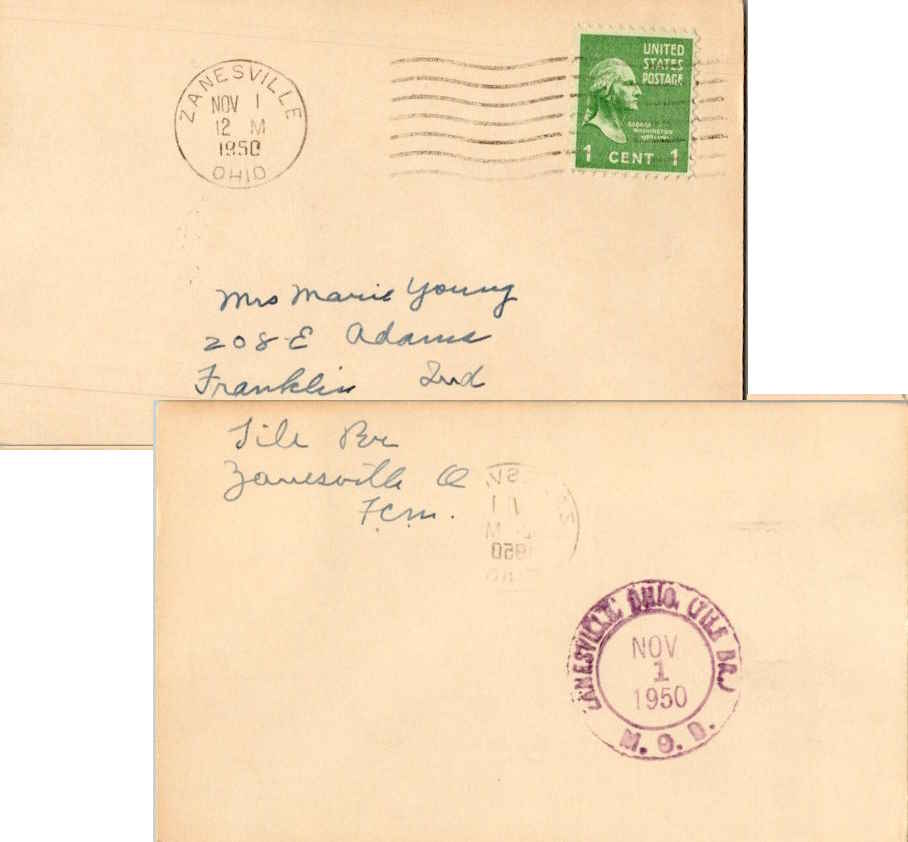 ZANESVILLE
NOV 1
12 M
1950
OHIO
UNITED
STATES
POSTAGE
GEORGE
WASHINGTON
1 CENT 1
Mrs Marie Young
208 E Adams
Franklin Ind
Tile Br
Zanesville O
Fcm.
ZANESVILLE, OHIO. (TILE BR.)
NOV
1
1950
M.O.B.